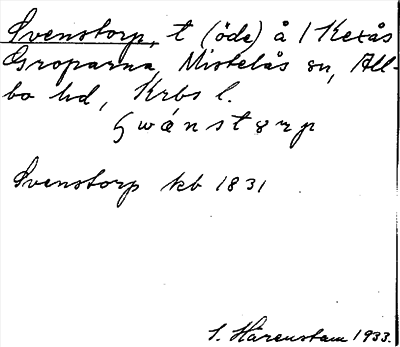 Svenstorp, t (öde) å 1 Kexås
Groparna, Mistelås sn, All-
bo hd, Krbs l.
swánstərp
Svenstorp kb 1831
S. Härenstam 1933.